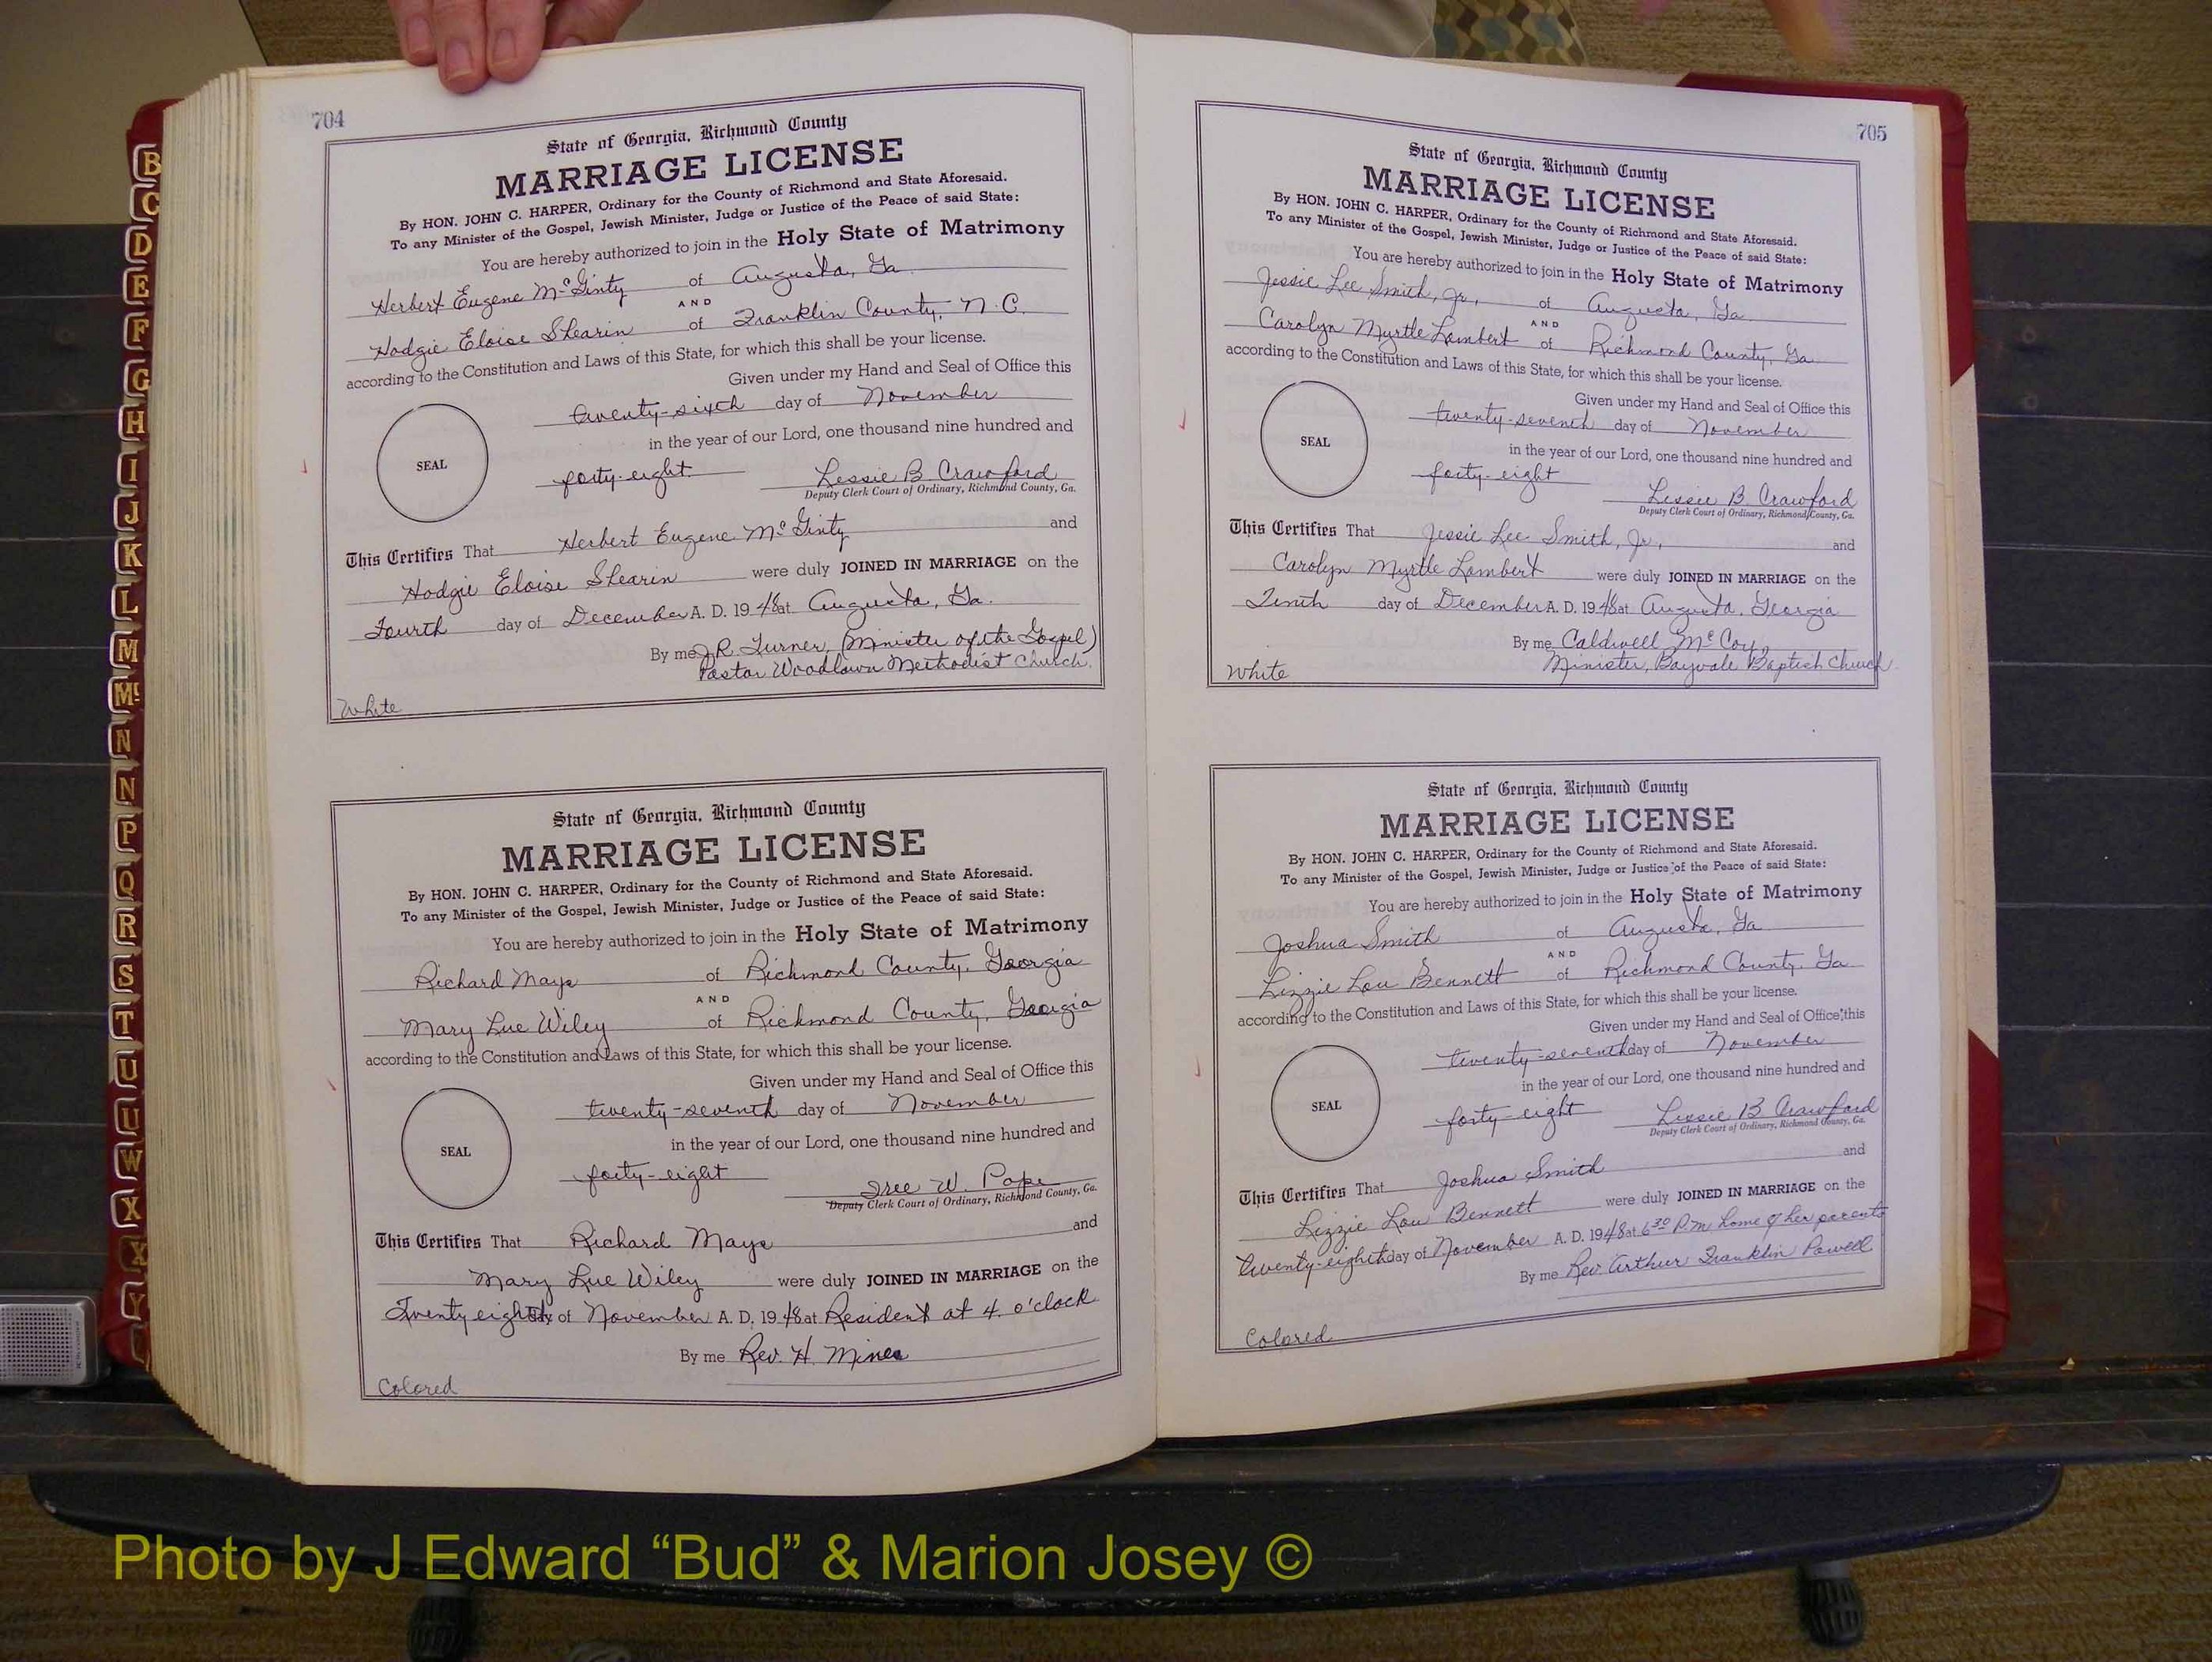 704
State of Georgia, Richmond County
MARRIAGE LICENSE
By HON. JOHN C. HARPER, Ordinary for the County of Richmond and State Aforesaid.
To any Minister of the Gospel, Jewish Minister, Judge or Justice of the Peace of said State:
You are hereby authorized to join in the Holy State of Matrimony
Herbert Eugene McGinty of Augusta, Ga
AND
Hodgie Eloise Shearin of Franklin County, N.C.
according to the Constitution and Laws of this State, for which this shall be your license.
Given under my Hand and Seal of Office this
twenty-sixth day of November
in the year of our Lord, one thousand nine hundred and
SEAL
forty-eight Lessie B. Crawford
Deputy Clerk Court of Ordinary, Richmond County, Ga.
This Certifies That Herbert Eugene McGinty and
Hodgie Eloise Shearin were duly JOINED IN MARRIAGE on the
Fourth day of December A. D. 1948 at Augusta, Ga.
By me J.R. Turner, (Minister of the Gospel)
Pastor Woodlawn Methodist Church.
White
State of Georgia, Richmond County
MARRIAGE LICENSE
By HON. JOHN C. HARPER, Ordinary for the County of Richmond and State Aforesaid.
To any Minister of the Gospel, Jewish Minister, Judge or Justice of the Peace of said State:
You are hereby authorized to join in the Holy State of Matrimony
Richard Mays of Richmond County, Georgia
AND
Mary Lue Wiley of Richmond County, Georgia
according to the Constitution and Laws of this State, for which this shall be your license.
Given under my Hand and Seal of Office this
twenty-seventh day of November
in the year of our Lord, one thousand nine hundred and
SEAL
forty-eight Iree W. Pope
Deputy Clerk Court of Ordinary, Richmond County, Ga.
This Certifies That Richard Mays and
Mary Lue Wiley were duly JOINED IN MARRIAGE on the
Twenty eighth day of November A. D. 1948 at Resident at 4 o'clock
By me Rev. H. Mines
Colored
705
State of Georgia, Richmond County
MARRIAGE LICENSE
By HON. JOHN C. HARPER, Ordinary for the County of Richmond and State Aforesaid.
To any Minister of the Gospel, Jewish Minister, Judge or Justice of the Peace of said State:
You are hereby authorized to join in the Holy State of Matrimony
Jessie Lee Smith, Jr., of Augusta, Ga
AND
Carolyn Myrtle Lambert of Richmond County, Ga
according to the Constitution and Laws of this State, for which this shall be your license.
Given under my Hand and Seal of Office this
twenty-seventh day of November
in the year of our Lord, one thousand nine hundred and
SEAL
forty-eight Lessie B. Crawford
Deputy Clerk Court of Ordinary, Richmond County, Ga.
This Certifies That Jessie Lee Smith, Jr., and
Carolyn Myrtle Lambert were duly JOINED IN MARRIAGE on the
Tenth day of December A. D. 1948 at Augusta, Georgia
By me Caldwell McCoy,
Minister, Bayvale Baptist Church
White
State of Georgia, Richmond County
MARRIAGE LICENSE
By HON. JOHN C. HARPER, Ordinary for the County of Richmond and State Aforesaid.
To any Minister of the Gospel, Jewish Minister, Judge or Justice of the Peace of said State:
You are hereby authorized to join in the Holy State of Matrimony
Joshua Smith of Augusta, Ga
AND
Lizzie Lou Bennett of Richmond County, Ga
according to the Constitution and Laws of this State, for which this shall be your license.
Given under my Hand and Seal of Office this
twenty-seventh day of November
in the year of our Lord, one thousand nine hundred and
SEAL
forty-eight Lessie B Crawford
Deputy Clerk Court of Ordinary, Richmond County, Ga.
This Certifies That Joshua Smith and
Lizzie Lou Bennett were duly JOINED IN MARRIAGE on the
Twenty-eighth day of November A. D. 1948 at 6 30 P.m. home of her parents
By me Rev. Arthur Franklin Powell
Colored
B
C
D
E
F
G
H
I
J
K
L
M
Mc
N
N
P
Q
R
S
T
U
U
W
X
X
Y
Photo by J Edward “Bud” & Marion Josey ©